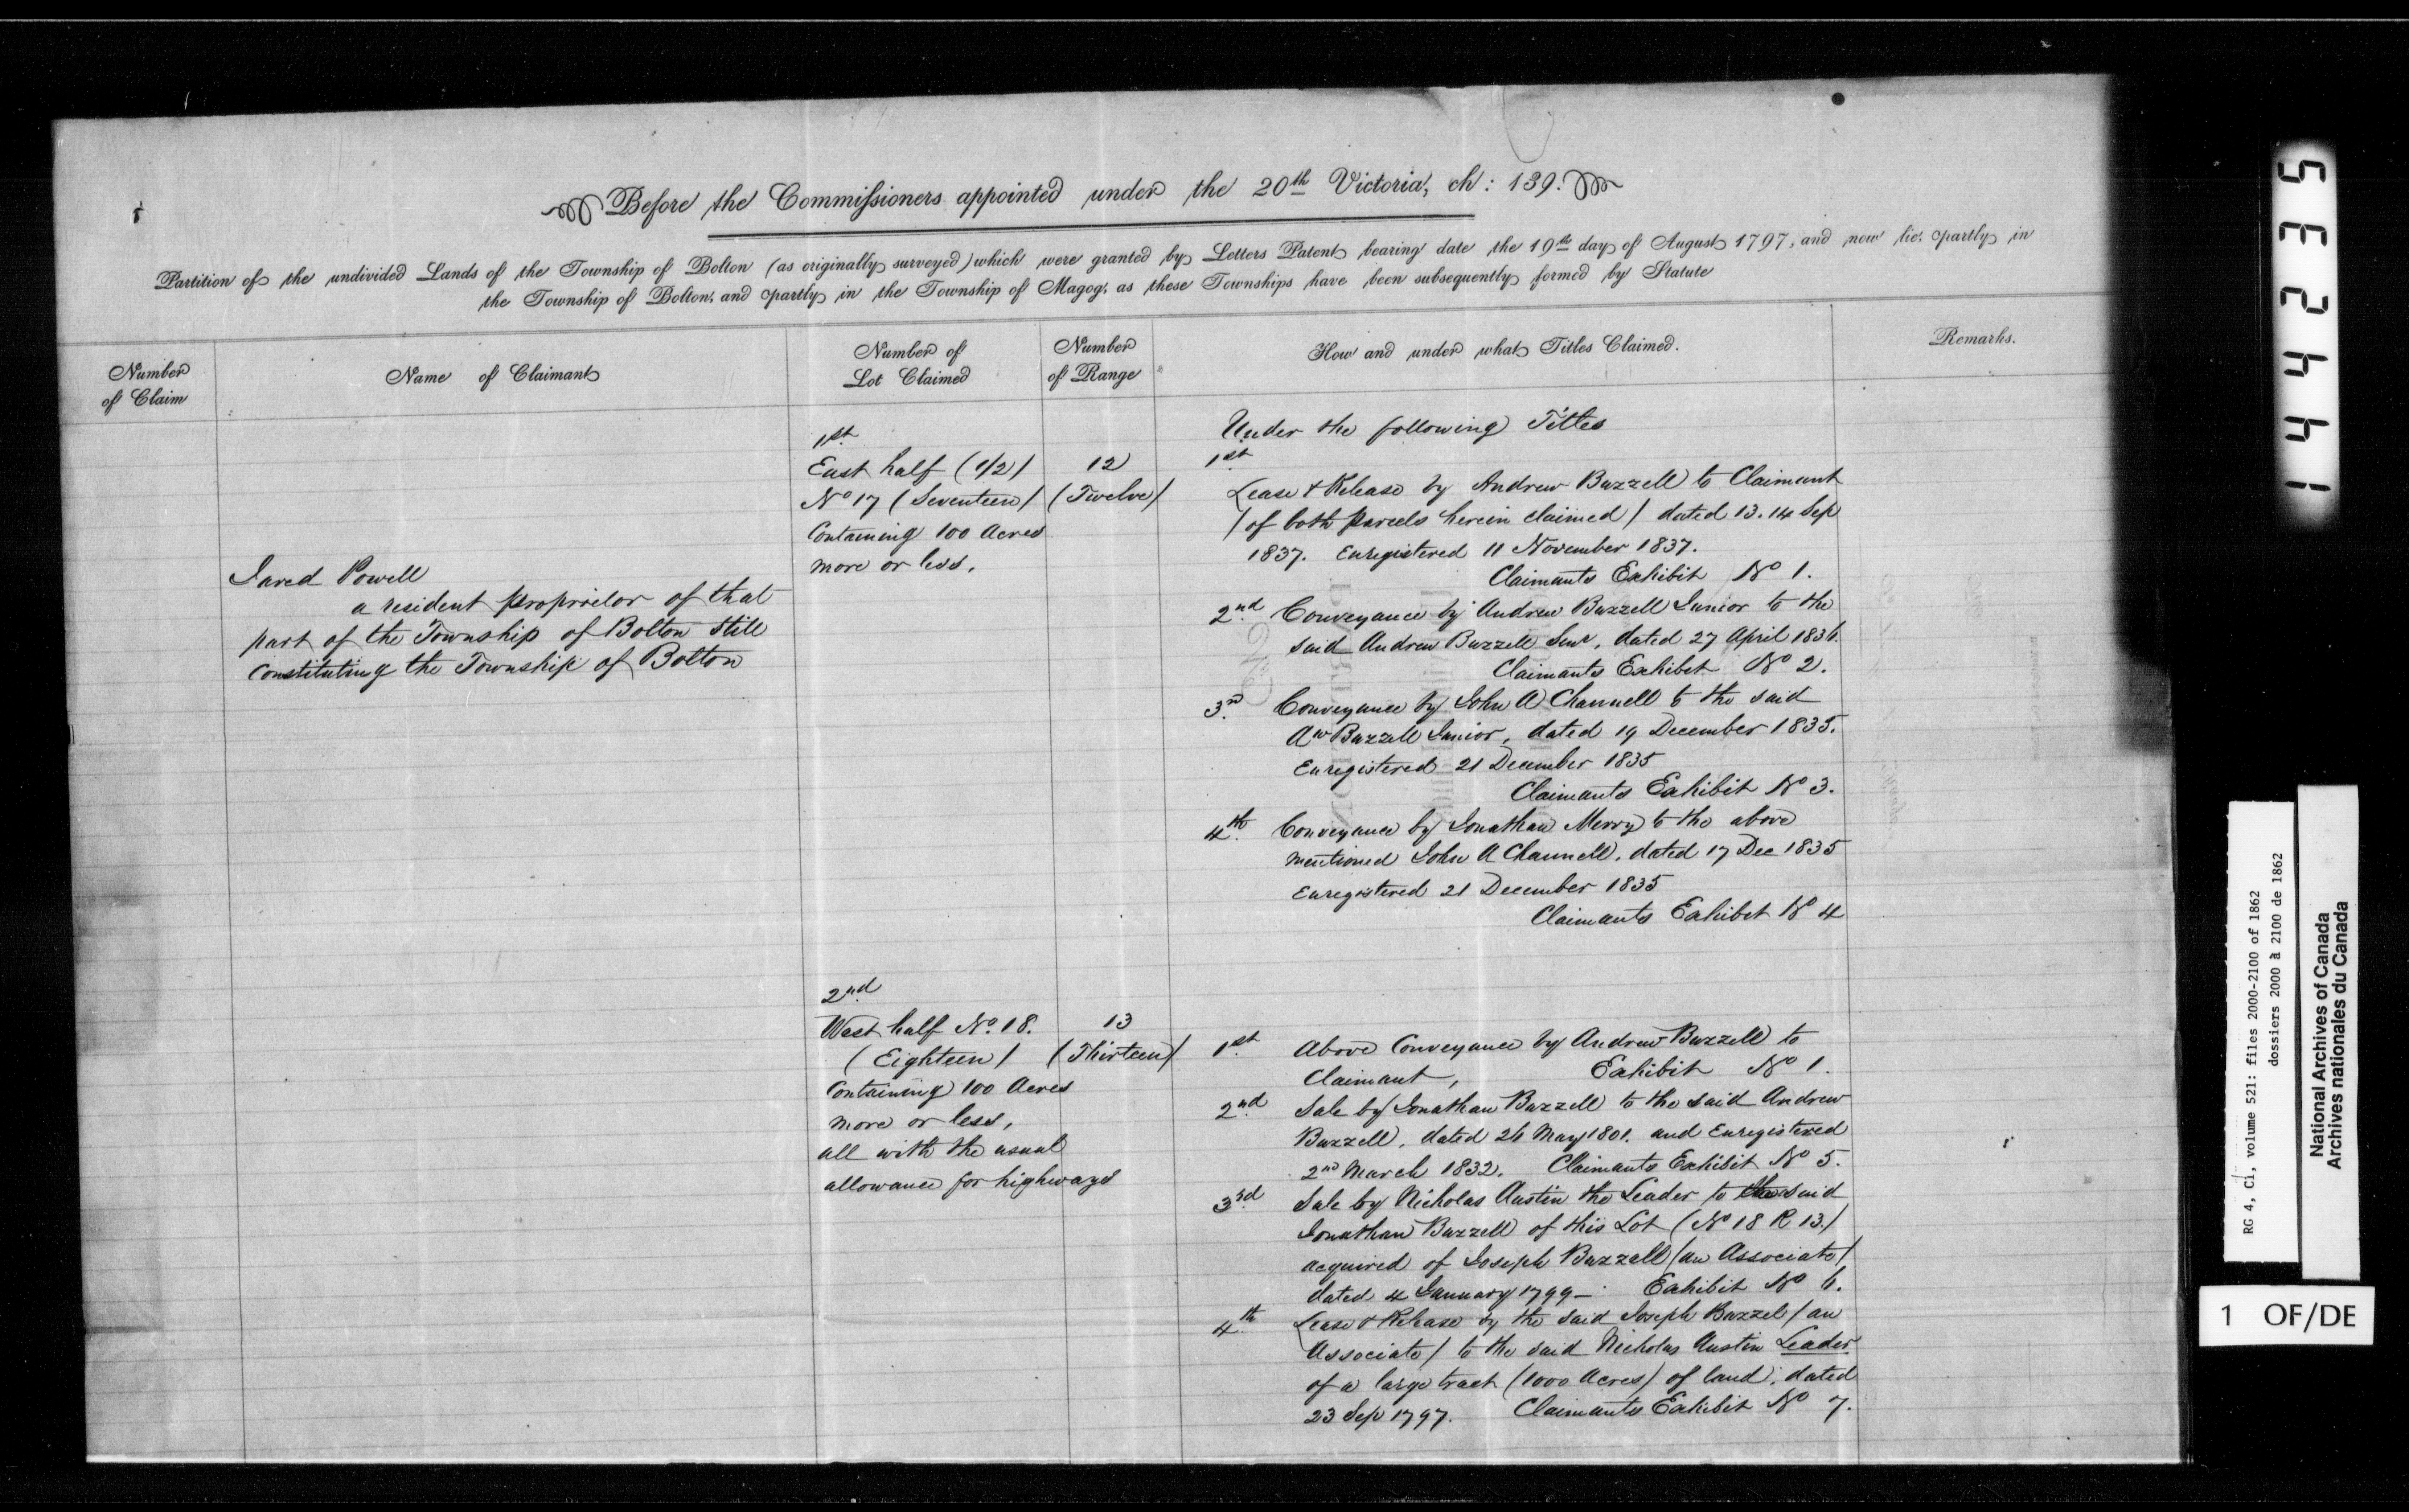 Before the Commissioners appointed under the 20th Victoria, ch: 139.
Partition of the undivided Lands of the Township of Bolton (as originally surveyed) which were granted by Letters Patent bearing date the 19th day of August 1797, and now lie, partly in
the Township of Bolton, and partly in the Township of Magog, as these Townships have been subsequently formed by Statute
Number of Claim
Name of Claimant
Number of Lot Claimed
Number of Range
How and under what Titles Claimed.
Remarks.
Jared Powell
a resident proprietor of that
part of the Township of Bolton still
Constituting the Township of Bolton
1st
East half (1/2)
No 17 (Seventeen)
Containing 100 Acres
more or less.
12
(Twelve)
Under the following Titles
1st
Lease & Release by Andrew Buzzell to Claimant
(of both parcels herein claimed) dated 13. 14 Sep
1837. Enregistered 11 November 1837.
Claimants Exhibit No 1.
2nd Conveyance by Andrew Buzzell Junior to the
said Andrew Buzzell Senr, dated 27 April 1836.
Claimants Exhibit No 2.
3rd Conveyance by John A Channell to the said
Aw Buzzell Junior, dated 19 December 1835.
Enregistered 21 December 1835
Claimants Exhibit No 3.
4th Conveyance by Jonathan Merry to the above
mentioned John A Channell, dated 17 Dec 1835
Enregistered 21 December 1835
Claimants Exhibit No 4
2nd
West half No. 18.
(Eighteen)
Containing 100 Acres
more or less,
all with the usual
allowance for highways
13
(Thirteen)
1st Above Conveyance by Andrew Buzzell to
Claimant, Exhibit No 1.
2nd Sale by Jonathan Buzzell to the said Andrew
Buzzell, dated 26 May 1801. and Enregistered
2nd March 1832. Claimants Exhibit No 5.
3rd Sale by Nicholas Austin the Leader to the said
Jonathan Buzzell of this Lot (No 18 R 13.)
acquired of Joseph Buzzell (an Associate)
dated 4 January 1799 - Exhibit No 6.
4th Lease & Release by the said Joseph Buzzel (an
Associate) to the said Nicholas Austin Leader
of a large tract (1000 Acres) of land, dated
23 Sep 1797. Claimants Exhibit No 7.
144235
RG 4, Ci, volume 521: files 2000-2100 of 1862
dossiers 2000 à 2100 de 1862
National Archives of Canada
Archives nationales du Canada
1 OF/DE